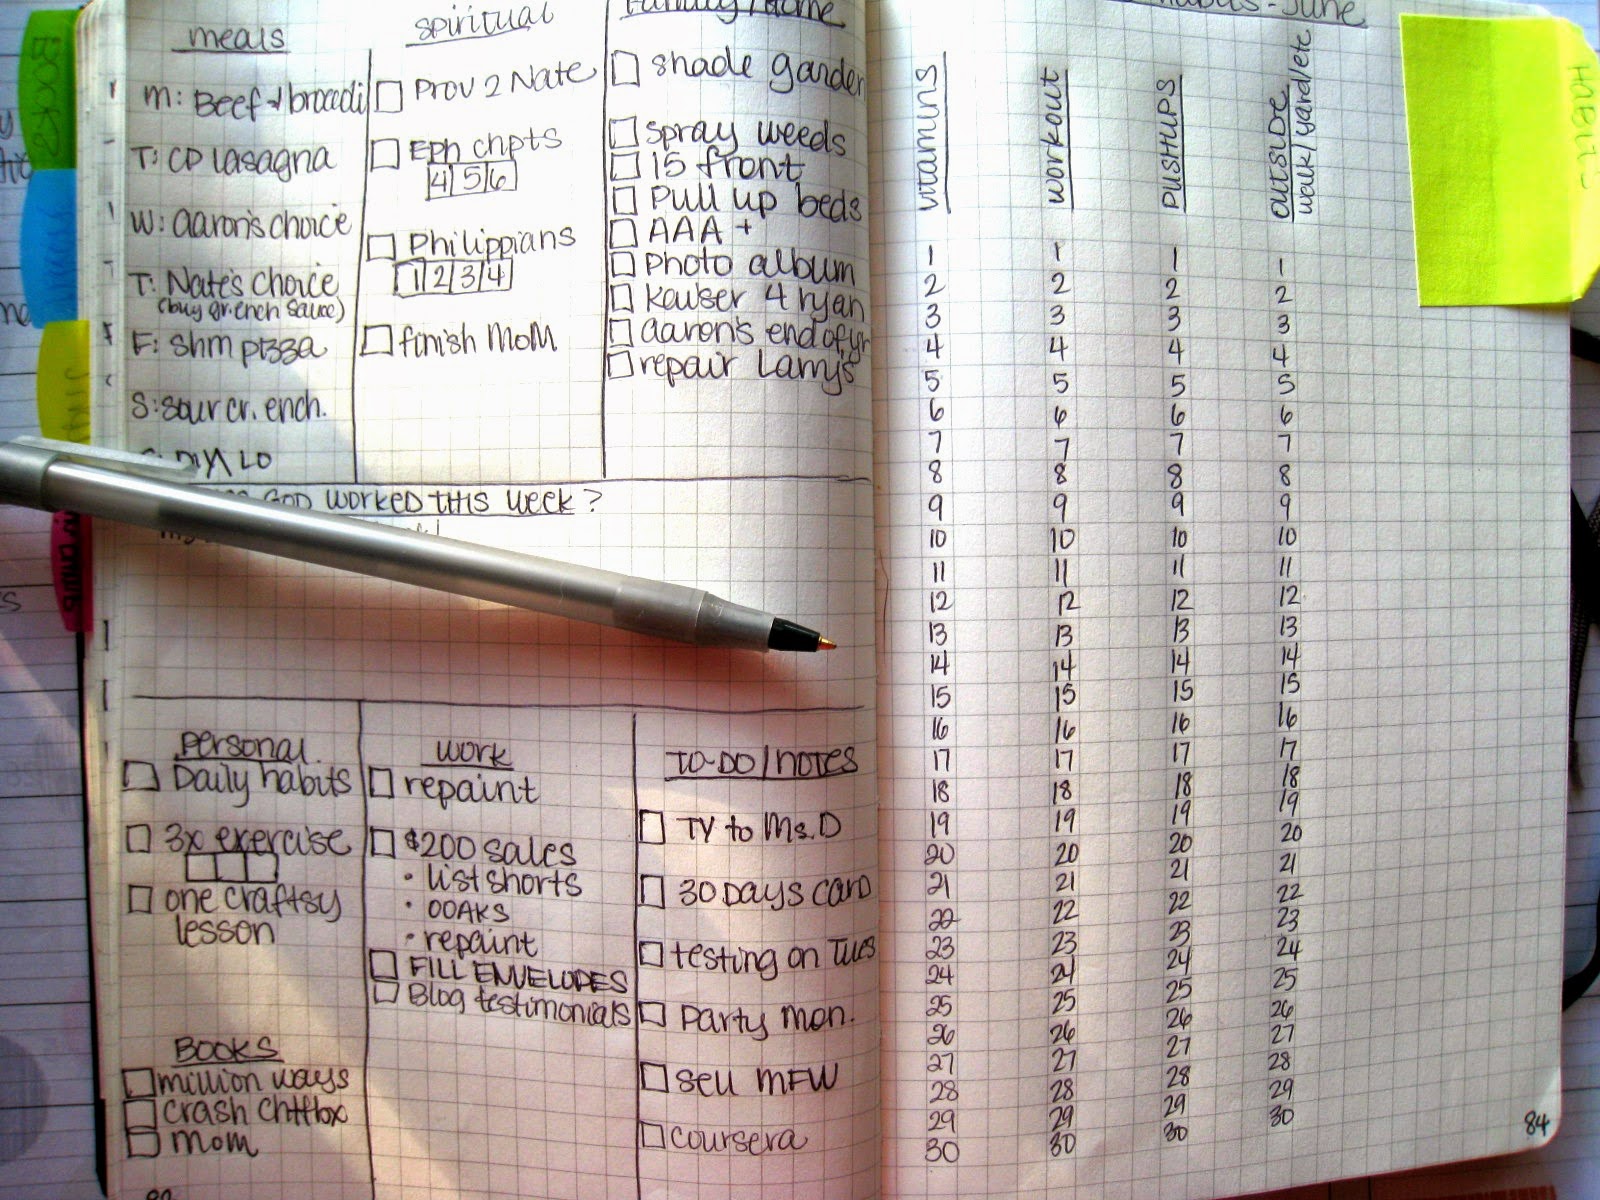 meals
M: Beef & broccoli
T: CP lasagna
W: Aaron's choice
T: Nate's choice
(buy gr. ench sauce)
F: Shm pizza
S: Sour cr. ench.
LO
spiritual
Prov 2 Nate
Eph chpts
4 5 6
Philippians
1 2 3 4
finish MoM
Family/Home
shade garden
spray weeds
15 front
Pull up beds
AAA +
Photo album
Kaiser 4 ryan
Aaron's end of yr
repair Larry's
GOD WORKED THIS WEEK?
personal
Daily habits
3x exercise
one craftsy
lesson
BOOKS
million ways
crash
mom
work
repaint
$200 sales
• list shorts
• OOAKS
• repaint
FILL ENVELOPES
Blog testimonials
TO-DO/NOTES
TY to Ms. D
30 Days card
testing on Tues
Party mon.
sell MFW
coursera
Habits - June
VITAMINS
WORKOUT
PUSHUPS
OUTSIDE
walk/yard/etc
1 1 1 1
2 2 2 2
3 3 3 3
4 4 4 4
5 5 5 5
6 6 6 6
7 7 7 7
8 8 8 8
9 9 9 9
10 10 10 10
11 11 11 11
12 12 12 12
13 13 13 13
14 14 14 14
15 15 15 15
16 16 16 16
17 17 17 17
18 18 18 18
19 19 19 19
20 20 20 20
21 21 21 21
22 22 22 22
23 23 23 23
24 24 24 24
25 25 25 25
26 26 26 26
27 27 27 27
28 28 28 28
29 29 29 29
30 30 30 30
84
BOOKS